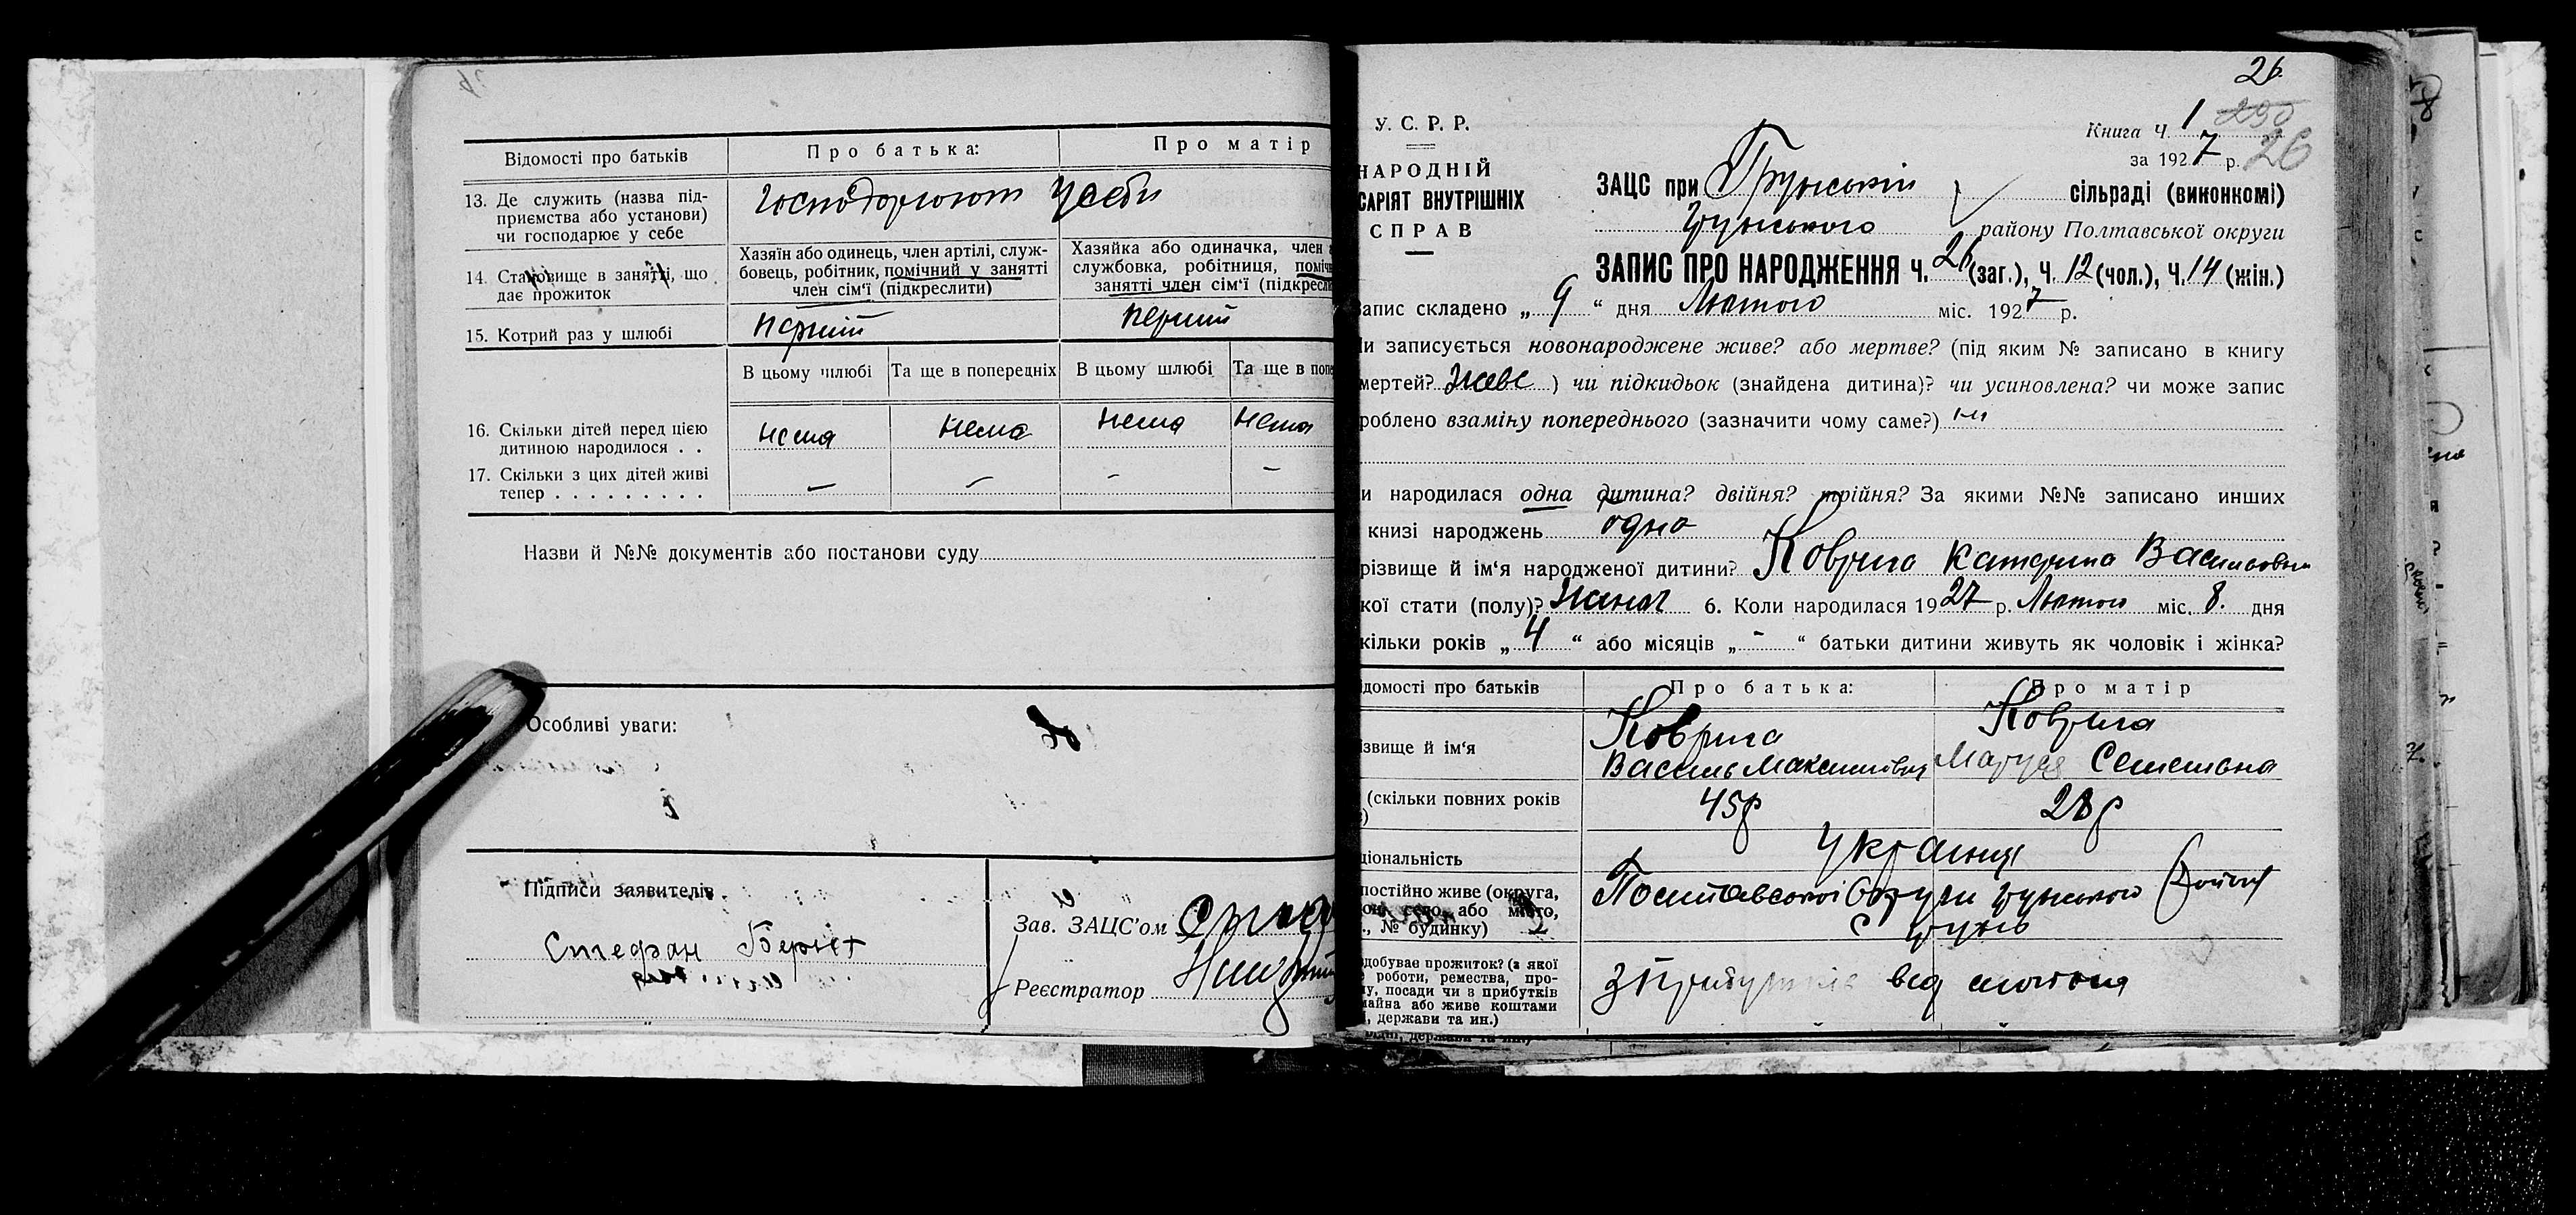 Відомості про батьків
Про батька:
Про матір
13. Де служить (назва під-
приємства або установи)
чи господарює у себе
господарюют усебе
14. Становище в занятті, що
дає прожиток
Хазяїн або одинець, член артілі, служ-
бовець, робітник, помічний у занятті
член сім'ї (підкреслити)
Хазяйка або одиначка, член
службовка, робітниця,
занятті член сім'ї
15. Котрий раз у шлюбі
перший
перший
В цьому шлюбі
Та ще в попередніх
В цьому шлюбі
Та ще в
16. Скільки дітей перед цією
дитиною народилося . .
нема
нема
нема
нема
17. Скільки з цих дітей живі
тепер . . . . . . . . .
–
–
–
–
Назви й №№ документів або постанови суду
Особливі уваги:
Підписи заявителів
Стефан
Зав. ЗАЦС'ом
Реєстратор
26
Книга Ч. 1 290
за 1927 р. 26
У. С. Р. Р.
НАРОДНІЙ
САРІЯТ ВНУТРІШНІХ
СПРАВ
ЗАЦС при Грунській сільраді (виконкомі)
Грунського району Полтавської округи
ЗАПИС ПРО НАРОДЖЕННЯ Ч. 26 (заг.), Ч. 12 (чол.), Ч. 14 (жін.)
апис складено „ 9 “ дня Лютого міс. 1927 р.
и записується новонароджене живе? або мертве? (під яким № записано в книгу
мертей? живе ) чи підкидьок (знайдена дитина)? чи усиновлена? чи може запис
роблено взаміну попереднього (зазначити чому саме?) ні
и народилася одна дитина? двійня? трійня? За якими №№ записано инших
книзі народжень одна
різвище й ім'я народженої дитини? Коврига Катерина Василовна
кої стати (полу)? 6. Коли народилася 1927 р. Лютого міс. 8. дня
кільки років „ 4 “ або місяців „ - “ батьки дитини живуть як чоловік і жінка?
ідомості про батьків
Про батька:
Про матір
ізвище й ім'я
Коврига
Василь Максимович
Коврига
Маруся Семеновна
(скільки повних років
45р
28р
ціональність
Україн
постійно живе (округа,
село або місто,
№ будинку)
Полтавської Округи Грунського Району
с Грунь
добуває прожиток? (з якої
роботи, ремества, про-
у, посади чи з прибутків
майна або живе коштами
, держави та ин.)
З прибутків від